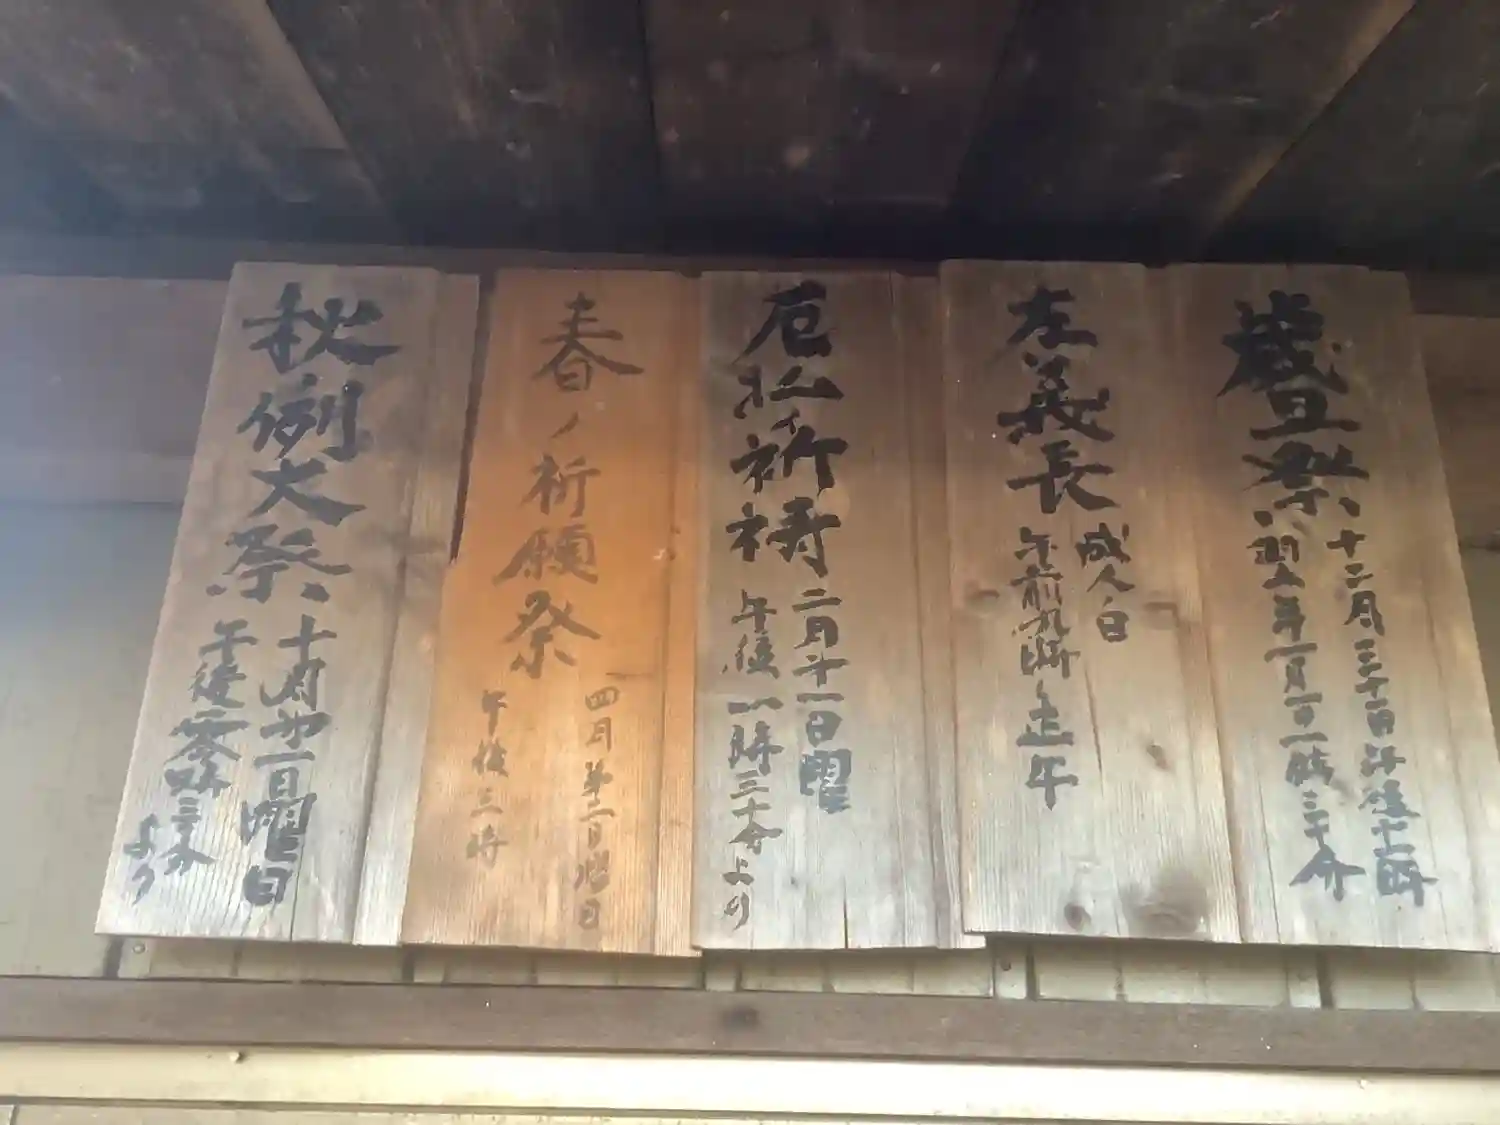 歳旦祭
十二月三十一日午後十一時
翌年一月一日一時三十分
左義長
成人ノ日
午前九時〜正午
厄払イ祈祷
二月十一日曜
午後一時三十分より
春ノ祈願祭
四月第二日曜日
午後三時
秋例大祭
十月第一日曜日
午後零時三十分
より